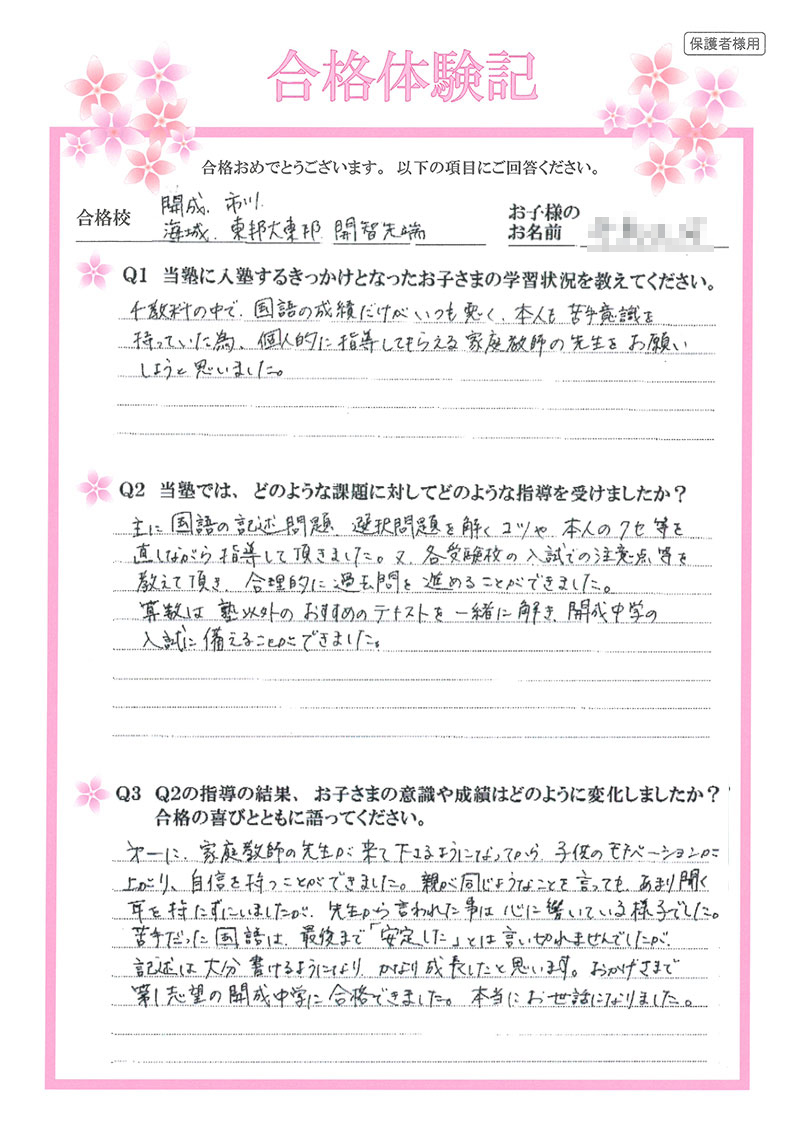 保護者様用
合格体験記
合格おめでとうございます。以下の項目にご回答ください。
開成、市川、
合格校 海城、東邦大東邦 開智先端
お子様の
お名前
Q1 当塾に入塾するきっかけとなったお子さまの学習状況を教えてください。
4教科の中で、国語の成績だけがいつも悪く、本人も苦手意識を
持っていた為、個人的に指導してもらえる家庭教師の先生をお願い
しようと思いました。
Q2 当塾では、どのような課題に対してどのような指導を受けましたか？
主に国語の記述問題、選択問題を解くコツや、本人のクセ等を
直しながら指導して頂きました。又、各受験校の入試での注意点等を
教えて頂き、合理的に過去問を進めることができました。
算数は塾以外のおすすめのテキストを一緒に解き、開成中学の
入試に備えることができました。
Q3 Q2の指導の結果、お子さまの意識や成績はどのように変化しましたか？
合格の喜びとともに語ってください。
第一に、家庭教師の先生が来て下さるようになってから、子供のモチベーションが
上がり、自信を持つことができました。親が同じようなことを言っても、あまり聞く
耳を持たずにいましたが、先生から言われた事は心に響いている様子でした。
苦手だった国語は、最後まで「安定した」とは言い切れませんでしたが、
記述は大分書けるようになり、かなり成長したと思います。おかげさまで
第1志望の開成中学に合格できました。本当にお世話になりました。